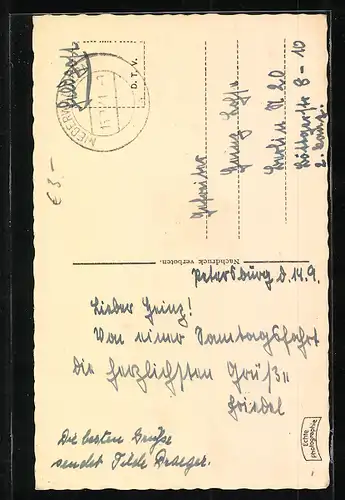 Feldpost
D.T.V.
Gefreiter
Heinz
Berlin N 20
8-10
€ 3.-
Nachdruck verboten.
Petersburg d. 14.9.
Lieber Heinz!
Von einer Sonntagsfahrt
die herzlichsten Grüße
Friedel
Die besten Grüße
sendet Tilde Draeger.
Echte
Photographie